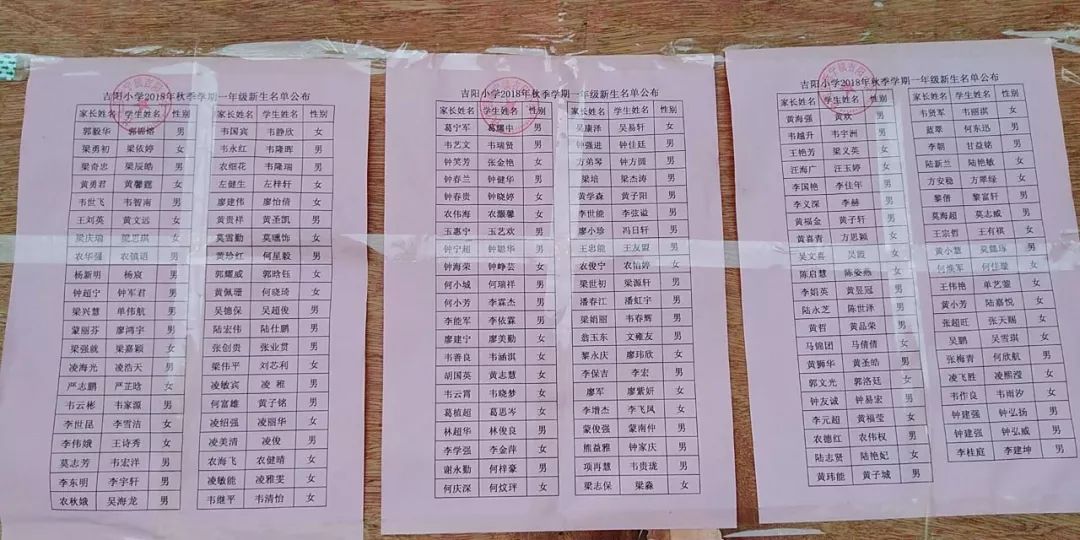 吉阳小学2018年秋季学期一年级新生名单公布
家长姓名 学生姓名 性别 家长姓名 学生姓名 性别
郭毅华 郭锦熔 男 韦国宾 韦静欣 女
梁勇初 梁依婷 女 韦永红 韦隆晖 男
梁奇忠 梁辰皓 男 农细花 韦隆瑞 男
黄勇君 黄馨霆 女 左健生 左梓轩 男
韦世飞 韦智南 男 廖建伟 廖怡倩 女
王刘英 黄文远 女 黄贵祥 黄圣凯 男
梁庆瑞 梁思琪 女 莫雪勤 莫曛饰 女
农华强 农镇语 男 黄珍红 何星毅 男
杨新明 杨宸 男 郭耀威 郭晗钰 女
钟超宁 钟军君 男 黄佩珊 何晓琦 女
梁兴慧 单伟航 男 吴德保 吴超俊 男
蒙丽芬 廖鸿宇 男 陆宏伟 陆仕鹏 男
梁强就 梁嘉颖 女 张创贵 张业贯 男
凌海光 凌浩天 男 梁伟平 刘芯利 女
严志鹏 严芷晗 女 凌敏宾 凌雅 男
韦云彬 韦家源 男 何富雄 黄子铭 男
李世昆 李雪洁 女 凌绍强 凌丽华 女
李伟娥 王诗秀 女 凌美清 凌俊 男
莫志芳 韦宏洋 男 农海飞 农健晴 女
李东明 李宇轩 男 凌敏能 凌雅雯 女
农秋娥 吴海龙 男 韦继平 韦清怡 女
吉阳小学2018年秋季学期一年级新生名单公布
家长姓名 学生姓名 性别 家长姓名 学生姓名 性别
葛宁军 葛耀中 男 吴康泽 吴易轩 女
韦艺文 韦瑞贤 男 钟强进 钟佳廷 男
钟笑芳 张金艳 女 方弟琴 钟方圆 男
钟春兰 钟健华 男 梁培 梁杰涛 男
钟春贵 钟晓婷 女 黄学森 黄子阳 男
农伟海 农灏馨 女 李世能 李弦谥 男
玉惠宁 玉艺欢 男 廖小珍 冯日轩 男
钟宁超 钟聪华 男 王忠能 王友盟 男
钟海荣 钟峥芸 女 农俊宁 农怡婷 女
何小城 何瑞祥 男 梁世初 梁源轩 男
何小芳 李霖杰 男 潘春江 潘虹宇 男
李能军 李依霖 男 梁娟丽 韦春辉 男
廖建宁 廖美勤 女 翁玉东 文雍友 男
韦善良 韦涵淇 女 黎永庆 廖玮欣 女
胡国英 黄志慧 女 李保吉 李宏 男
韦云霄 韦晓梦 女 廖军 廖紫妍 女
葛植超 葛思岑 女 李增杰 李飞凤 女
林超华 林俊良 男 蒙俊强 蒙南仲 男
李学强 李金萍 女 熊益雅 钟家庆 男
谢永勤 何梓豪 男 项冉慧 韦贵珑 男
何庆深 何炆玶 女 梁志保 梁淼 女
吉阳小学2018年秋季学期一年级新生名单公布
家长姓名 学生姓名 性别 家长姓名 学生姓名 性别
黄海强 黄欢 男 韦贤军 韦丽祺 女
韦越升 韦宇洲 男 蓝翠 何东迅 男
王艳芳 梁义英 女 李朝 甘益铭 男
汪海广 汪玉婷 女 陆新兰 陆艳敏 女
李国艳 李佳年 男 方安稳 方翠绿 女
李义深 李赫 男 黎僧 黎富轩 男
黄福金 黄子轩 男 莫海超 莫志威 男
黄喜青 方思颖 女 王宗哲 王有祺 女
吴文喜 吴霞 女 黄小慧 男
陈启慧 陈姿燕 女 何维军 女
李娟英 黄昱冠 男 王伟艳 单艺璇 女
陆永芝 陈世泽 男 黄小芳 陆嘉悦 女
黄哲 黄品荣 男 张超旺 张天赐 男
马锦团 马倩倩 女 吴鹏 吴雪琪 女
黄狮华 黄圣皓 男 张梅青 何欣航 男
郭文光 郭洛廷 男 凌飞胜 凌熙滢 女
钟友诚 钟易宏 男 韦作良 韦雨汐 女
李元超 黄福莹 女 钟建强 钟弘扬 男
农德红 农伟权 男 钟建强 钟弘威 男
陆志贤 陆艳妃 女 李桂庭 李建坤 男
黄玮能 黄子城 男